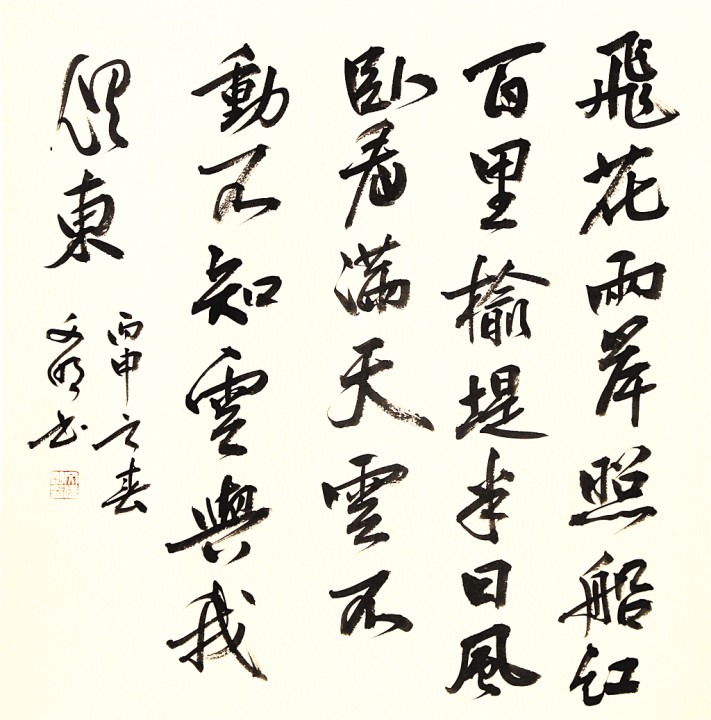 飛花兩岸照船紅
百里榆堤半日風
臥看滿天雲不
動不知雲與我
俱東
丙申之春
文明书